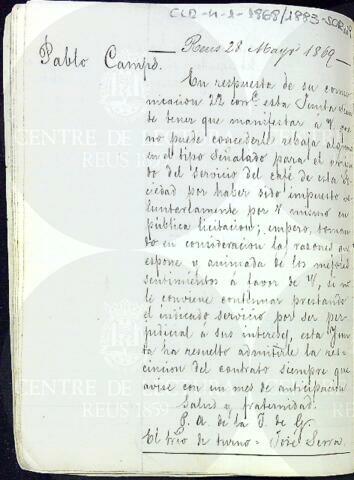 CLD-4-1-1868/1883-SORTI
Reus 28 Mayo 1869
Pablo Camps.
En respuesta de su comu
nicacion 22 corr.e esta Junta siente
te tener que manifestar á V. que
no puede concederle rebaja alguna
en el tipo señalado para el
do del servicio del café de esta So
ciedad por haber sido impuesto vo
luntariamente por V. mismo en
pública licitacion; empero, toman
do en consideracion las razones que
espone y animada de los mejores
sentimientos á favor de V., si no
le conviene continuar prestando
el indicado servicio por ser per
judicial á sus intereses, esta Jun
ta ha resuelto admitirle la res
cincion del contrato siempre que
avise con un mes de anticipacion
Salud y fraternidad.
P. A. de la J. de G.
El srio de turno = José Serra.
CENTRE DE LECTURA
REUS 1859
CENTRE DE LECTURA
REUS 1859